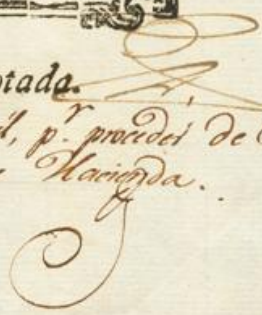 otada.
il, p.r proceder de
Hacienda.